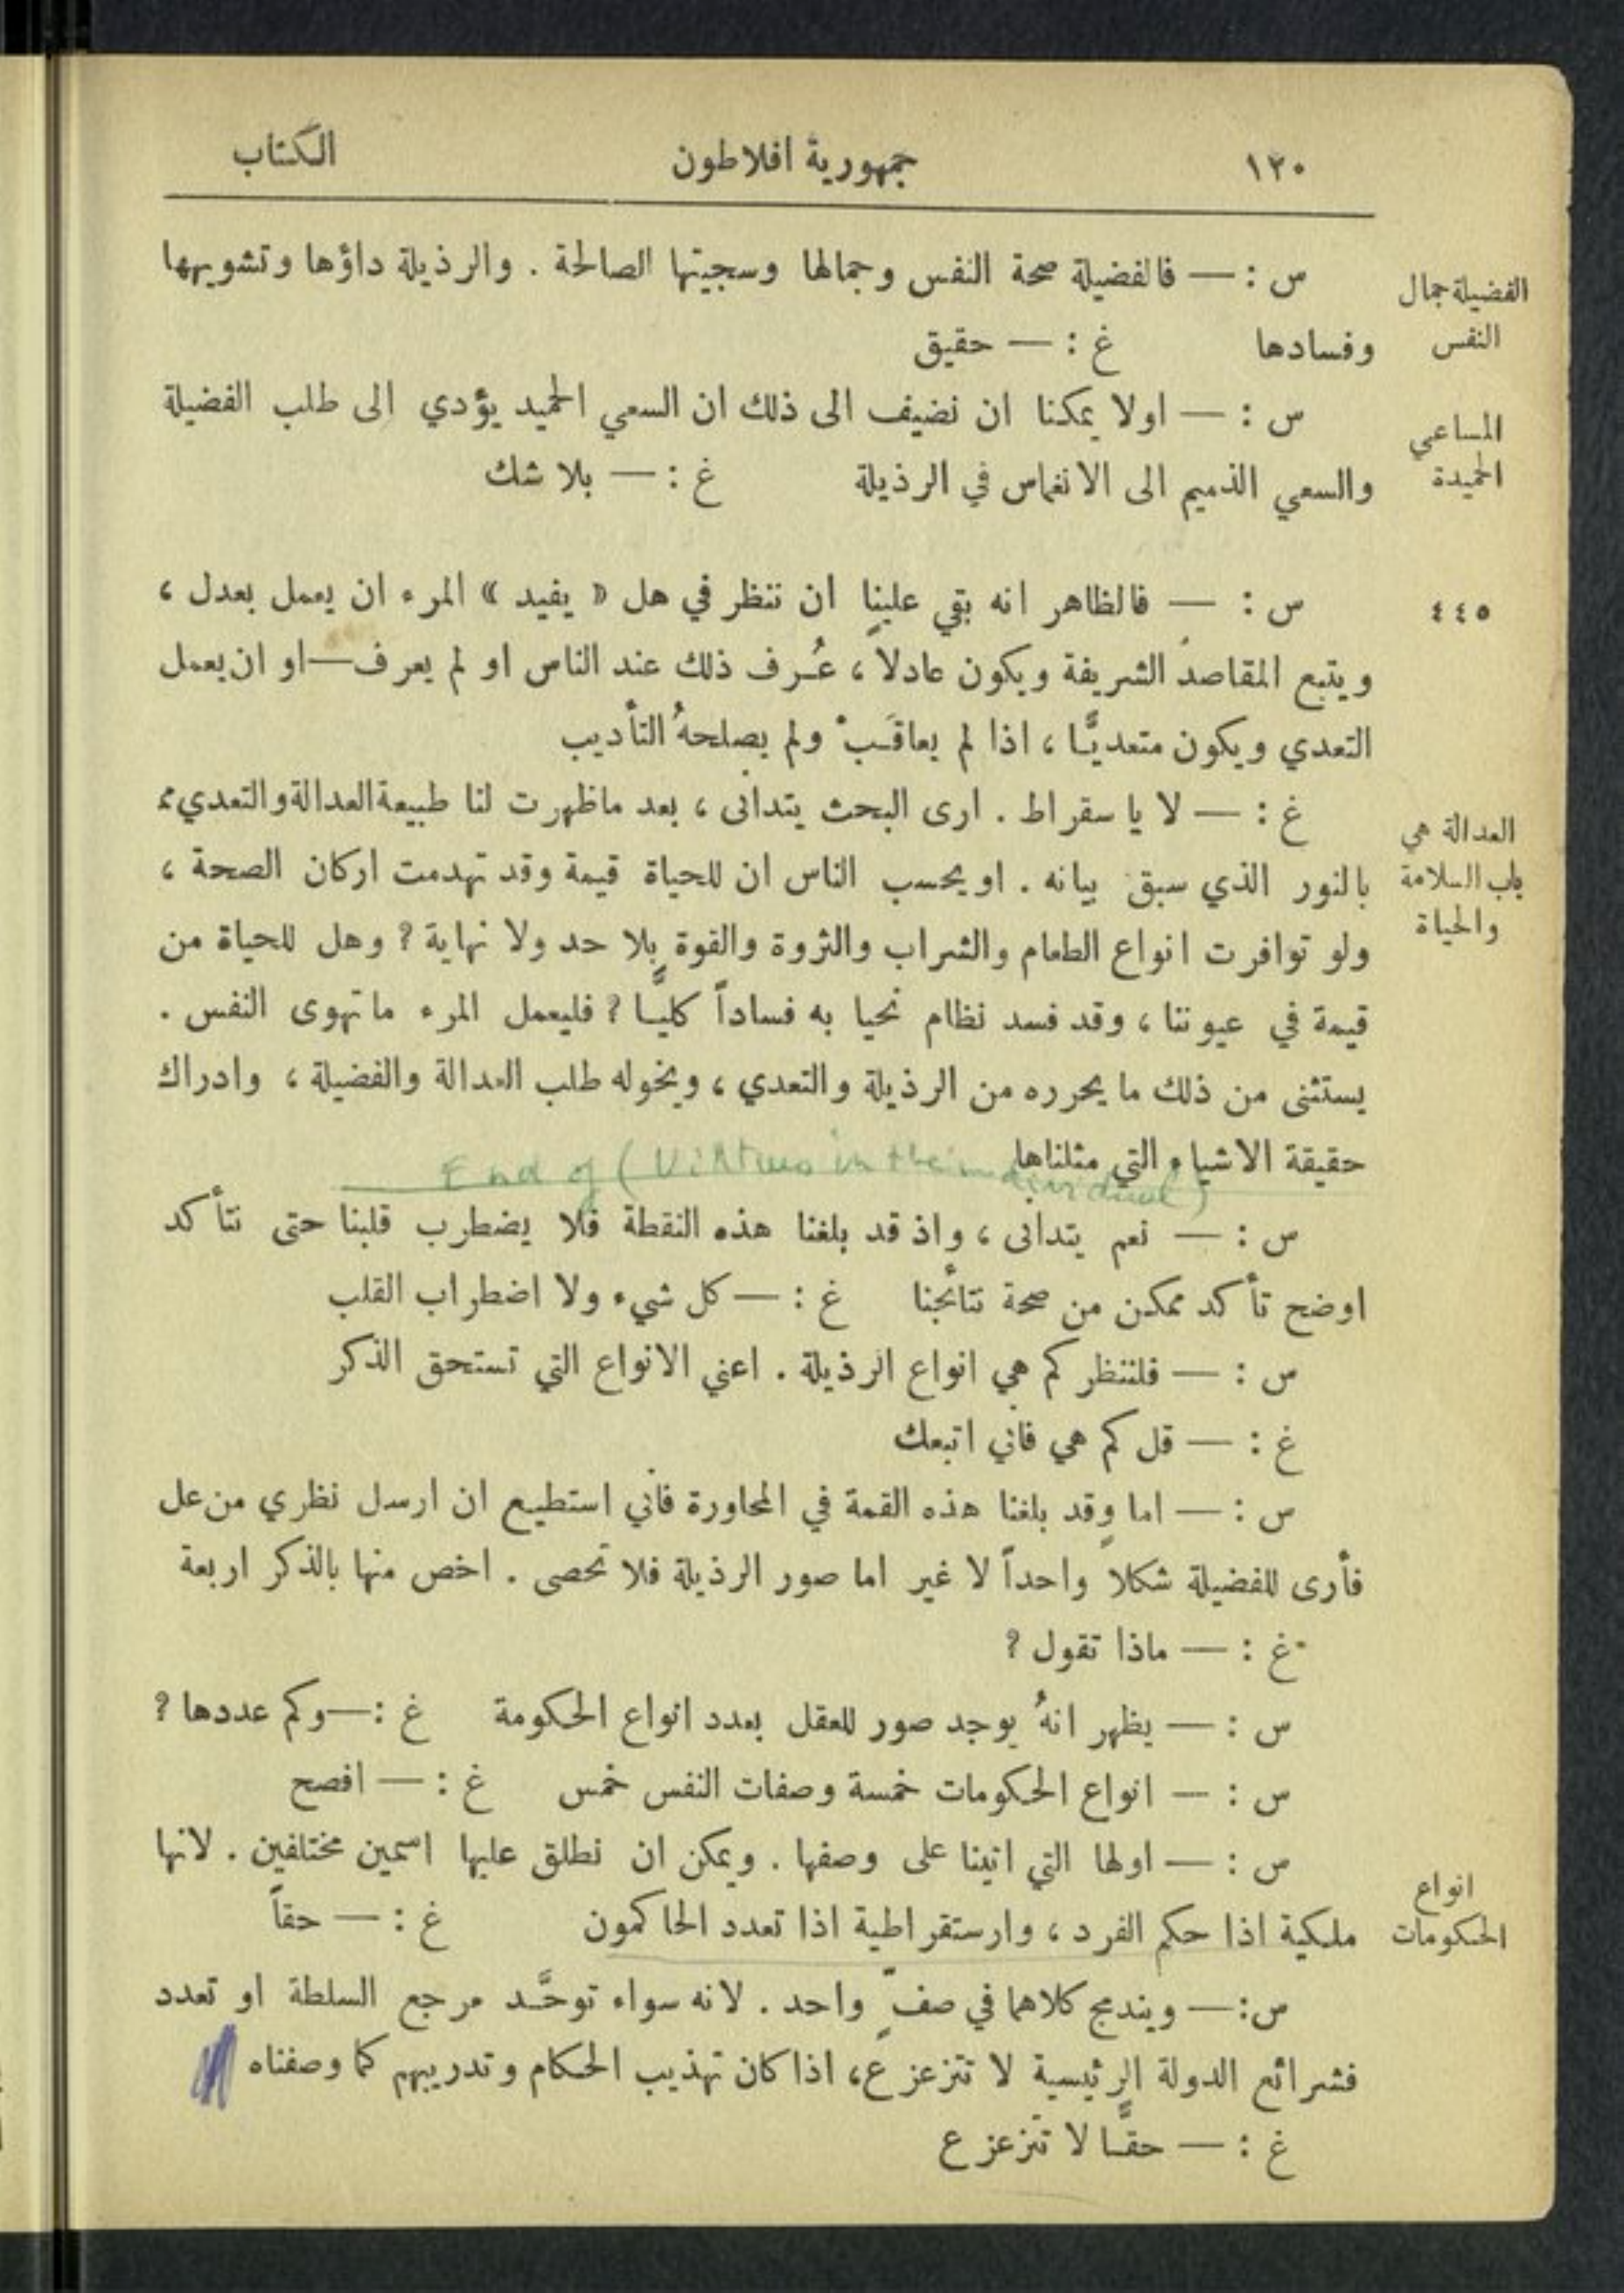 ١٢٠ جمهورية افلاطون الكتاب
الفضيلة جمال
النفس
س : — فالفضيلة صحة النفس وجمالها وسجيتها الصالحة . والرذيلة داؤها وتشويهها
وفسادها غ : — حقيق
المساعي
الحميدة
س : — اولا يمكنا ان نضيف الى ذلك ان السعي الحميد يؤدي الى طلب الفضيلة
والسعي الذميم الى الانغماس في الرذيلة غ : — بلا شك
٤٤٥
س : — فالظاهر انه بقي علينا ان ننظر في هل « يفيد » المرء ان يعمل بعدل ،
ويتبع المقاصد الشريفة ويكون عادلاً ، عُرف ذلك عند الناس او لم يعرف — او ان يعمل
التعدي ويكون متعديًّا ، اذا لم يعاقَبْ ولم يصلحهُ التأديب
العدالة هي
باب السلامة
والحياة
غ : — لا يا سقراط . ارى البحث يتدانى ، بعد ماظهرت لنا طبيعة العدالة والتعدي ،
بالنور الذي سبق بيانه . او يحسب الناس ان للحياة قيمة وقد تهدمت اركان الصحة ،
ولو توافرت انواع الطعام والشراب والثروة والقوة بلا حد ولا نهاية ? وهل للحياة من
قيمة في عيوننا ، وقد فسد نظام نحيا به فساداً كليًّا ? فليعمل المرء ماتهوى النفس .
يستثنى من ذلك ما يحرره من الرذيلة والتعدي ، ويخوله طلب العدالة والفضيلة ، وادراك
حقيقة الاشياء التي مثلناها
End of (Virtues in the individual)
س : — نعم يتدانى ، واذ قد بلغنا هذه النقطة فلا يضطرب قلبنا حتى نتأكد
اوضح تأكد ممكن من صحة نتائجنا غ : — كل شيء ولا اضطراب القلب
س : — فلننظر كم هي انواع الرذيلة . اعني الانواع التي تستحق الذكر
غ : — قل كم هي فاني اتبعك
س : — اما وقد بلغنا هذه القمة في المحاورة فاني استطيع ان ارسل نظري من عل
فأرى للفضيلة شكلاً واحداً لا غير اما صور الرذيلة فلا تحصى . اخص منها بالذكر اربعة
غ : — ماذا تقول ?
س : — يظهر انهُ يوجد صور للعقل بعدد انواع الحكومة غ : — وكم عددها ?
س : — انواع الحكومات خمسة وصفات النفس خمس غ : — افصح
انواع
الحكومات
س : — اولها التي اتينا على وصفها . ويمكن ان نطلق عليها اسمين مختلفين . لانها
ملكية اذا حكم الفرد ، وارستقراطية اذا تعدد الحاكمون غ : — حقاً
س : — ويندمج كلاهما في صفّ واحد . لانه سواء توحَّد مرجع السلطة او تعدد
فشرائع الدولة الرئيسية لا تتزعزع ، اذا كان تهذيب الحكام وتدريبهم كما وصفناه
غ : — حقًّا لا تتزعزع